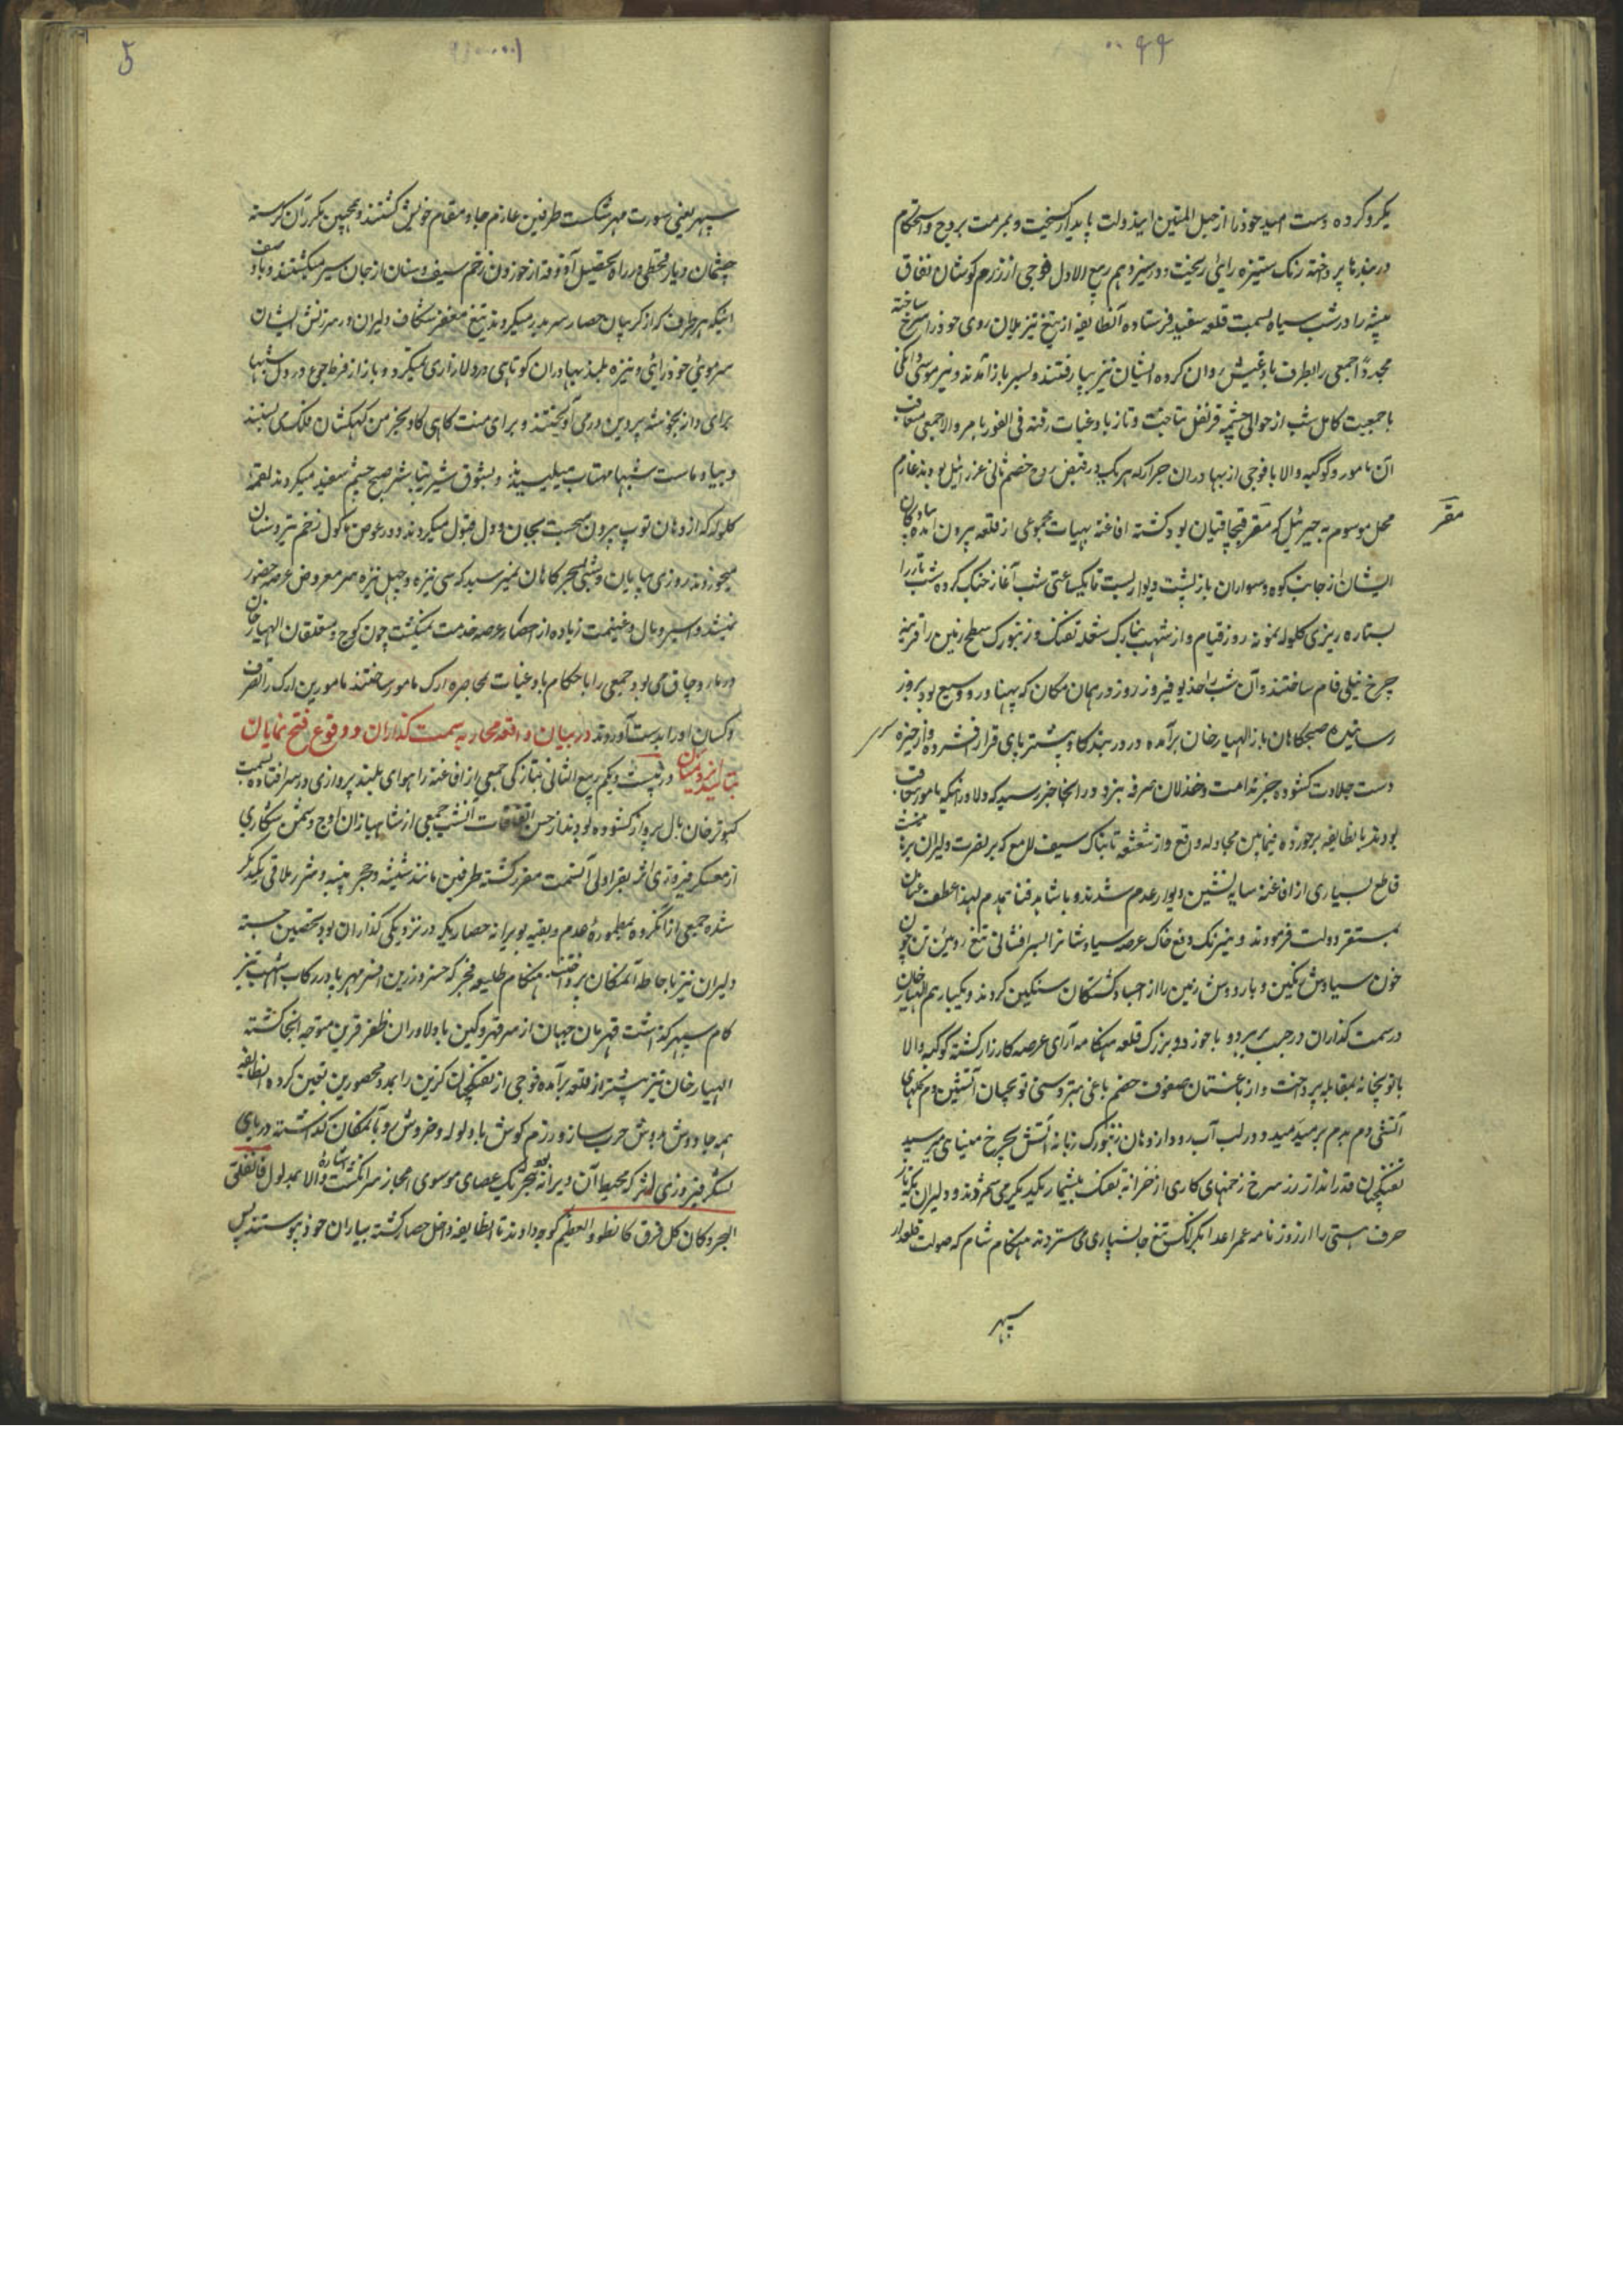 یکرو کرده دست امید خود را از حبل المتین این دولت پایدار کسیخت و بمرمت بروج و استحکام
در بندها پرداخته رنک ستیزه رائی ریخت و در سیزدهم ربیع الاول فوجی از رزم کوشان نفاق
پیشه را در شب سیاه بسمت قلعه سفید فرستاده آنطایفه از تیغ تیز یلان روی خود را سرخ ساخته
مجدداً جمعی را بطرف بادغیس روان کرده ایشان نیز بپا رفتند و بسر باز آمدند و نیز موسی دانکی
با جمعیت کامل شب از حوالی چشمه قرنفل بتاخت و تاز بادغیات رفته فی الفور بامر والا جمعی بتعاقب
آن مامور و کوکبه والا با فوجی از بهادران جرار که هر یک در قبض روح خصم ثانی عزرائیل بودند عازم
محل موسوم به جبرئیل که مقر قپچاقیان بود کشته افاغنه بهیات مجموعی از قلعه بیرون آمده پیادکان
مقر
ایشان از جانب کوه و سواران باز پشت دیوار بست تا یکساعتی شب آغاز جنک کرده شب تار را
بستاره ریزی کلوله نمونه روز قیام و از شهب نیازک شعله تفنک و زنبورک سطح زمین را قرینه
چرخ نیلی فام ساختند و آن شب را خدیو فیروز روز در همان مکان که پهناور و وسیع بود بروز
رسانیده صبحکاهان باز الهیار خان برآمده در در بند کاوپشتر پای قرار فشرده و از خیره سر
دست جلادت کشوده جز ندامت و خذلان صرفه نبرد و در آنجا خبر رسید که دلاورانیکه مامور بتعاقب
بودند بانطایفه برخورده فیمابین مجادله وقع و از شعشعه تابناک سیف لامع که بر نصرت دلیران برهان
قاطع بسیاری از افاغنه سایه نشین دیوار عدم شدند و با شاهد فنا همدم لهذا عطف عنان
بمستقر دولت فرمودند و نیرنک وقع خاک عرصه سیاوشان را بسرافشانی تیغ رومین تن چون
خون سیاوش رنکین و بار دوش زمین را از اجساد کشتکان سنکین کردند و یکبار هم الهیار خان
در سمت کذاران در جنب هریرود با خود دو بزرک قلعه هنکامه آرای عرصه کارزار کشته کوکبه والا
با توپخانه بمقابله پرداخت و از باغستان صفوف خصم باغی بتردستی توپچیان آتشین دم نخلهای
آتشی دم بدم برمیدمید و در لب آب رود از دهان زنبورک زبانه آتش بچرخ مینائی میرسید
تفنکچیان قدرانداز زر سرخ زخمهای کاری از خزانه تفنک بیشمار بیکدیکر می شمردند و دلیران یکه تاز
حرف هستی را از روزنامه عمر اعدا بکزلک تیغ جانسپاری می ستردند هنکام شام که صولت قلعه دار
سپهر
سپهر یعنی سورت مهر شکست طرفین عازم جا و مقام خویش کشتند و همچنین مکرر آن کرسنه
چشمان دیار قحطی در راه تحصیل آذوقه از خوردن زخم سیف و سنان از جان سیر میکشتند و با وصف
اینکه بهر طرف که از کریبان حصار سر بدر میکردند تیغ مغفر شکاف دلیران در سرزنش ایشان
سرموئی خودرائی و نیزه بلند بهادران کوتاهی در دلازاری نمیکرد و باز از فرط جوع در دل شبها
برای دانه بخوشه پروین در می آویختند و برای منت کاهی کاه بخرمن کهکشان فلک می بستند
و بیاد ماست شبها مهتاب میلیسیدند و بشوق شیر تباشیر صبح چشم سفید میکردند لقمه
کلوله که از دهان توپ بیرون میجست بجان و دل قبول میکردند و در عوض ماکول زخم تیر و سنان
میخوردند روزی بپایان و شبی بسحر کاهان نمیرسید که سی نیزه و چهل نیزه سر معروض عرصه حضور
نمیشد و اسیر و مال و غنیمت زیاده از احصار عرصه خدمت نمیکشت چون کوچ و متعلقان الهیار خان
در ماروچاق می بود جمعی را با حکام بادغیات بمحاصره ارک مامور ساختند مامورین ارک را تصرف
و کسان او را بدست آوردند در بیان واقعه محاربه سمت کذاران و وقوع فتح نمایان
بتائید ایزد منان در بیست و یکم ربیع الثانی بتازکی جمعی از افاغنه را هوای بلند پروازی در سر افتاده بسمت
کبوتر خان بال پرواز کشوده بودند از حسن اتفاقات آنشب جمعی از شاهبازان اوج دشمن شکاری
از معسکر فیروزی اثر بقراولی آنسمت مقرر کشته طرفین مانند شیشه و حجر پنبه و شرر ملاقی یکدیکر
شده جمعی از آنکروه بمطموره عدم و بقیه بویرانه حصاریکه در نزدیکی کذاران بود تحصین جسته
دلیران نیز باحاطه آنمکان پرداختند هنکام طلیعه فجر که خسرو زرین افسر مهر پا در رکاب اشهب تیز
کام سپهر کذاشت قهرمان جهان از سر قهر و کین با دلاوران ظفر قرین متوجه آنجا کشته
الهیار خان نیز پیشتر از قلعه برآمده فوجی از تفنکچیان کزین را بمدد محصورین تعیین کرده آنطایفه
همه جا دوش بدوش حرب ساز و رزم کوش با ولوله و خروش رو بآنمکان کذاشته دریای
لشکر فیروزی اثر که محیط آن ویرانه بود بتحریک عصای موسوی اعجاز سرانکشت اشاره والا بمدلول فانفلق
البحر و کان کل فرق کالطود العظیم کوچه دادند تا آنطایفه داخل حصار کشته بیاران خود پیوستند پس